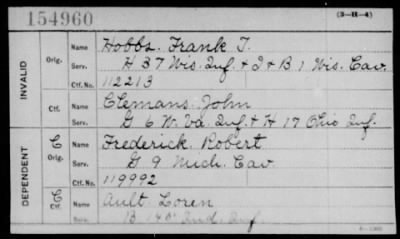 154960
(3-H-4)
INVALID
Orig.
Name Hobbs. Frank T.
Serv. H 37 Wis. Inf. & I & B 1 Wis. Cav.
Ctf. No. 112213
Ctf.
Name Clemans. John
Serv. G 6 W. Va. Inf. & H 17 Ohio Inf.
DEPENDENT
C Orig.
Name Frederick. Robert
Serv. G 9 Mich. Cav.
Ctf. No. 119992
C Ctf.
Name Ault. Loren
Serv. B 140 Ind. Inf.